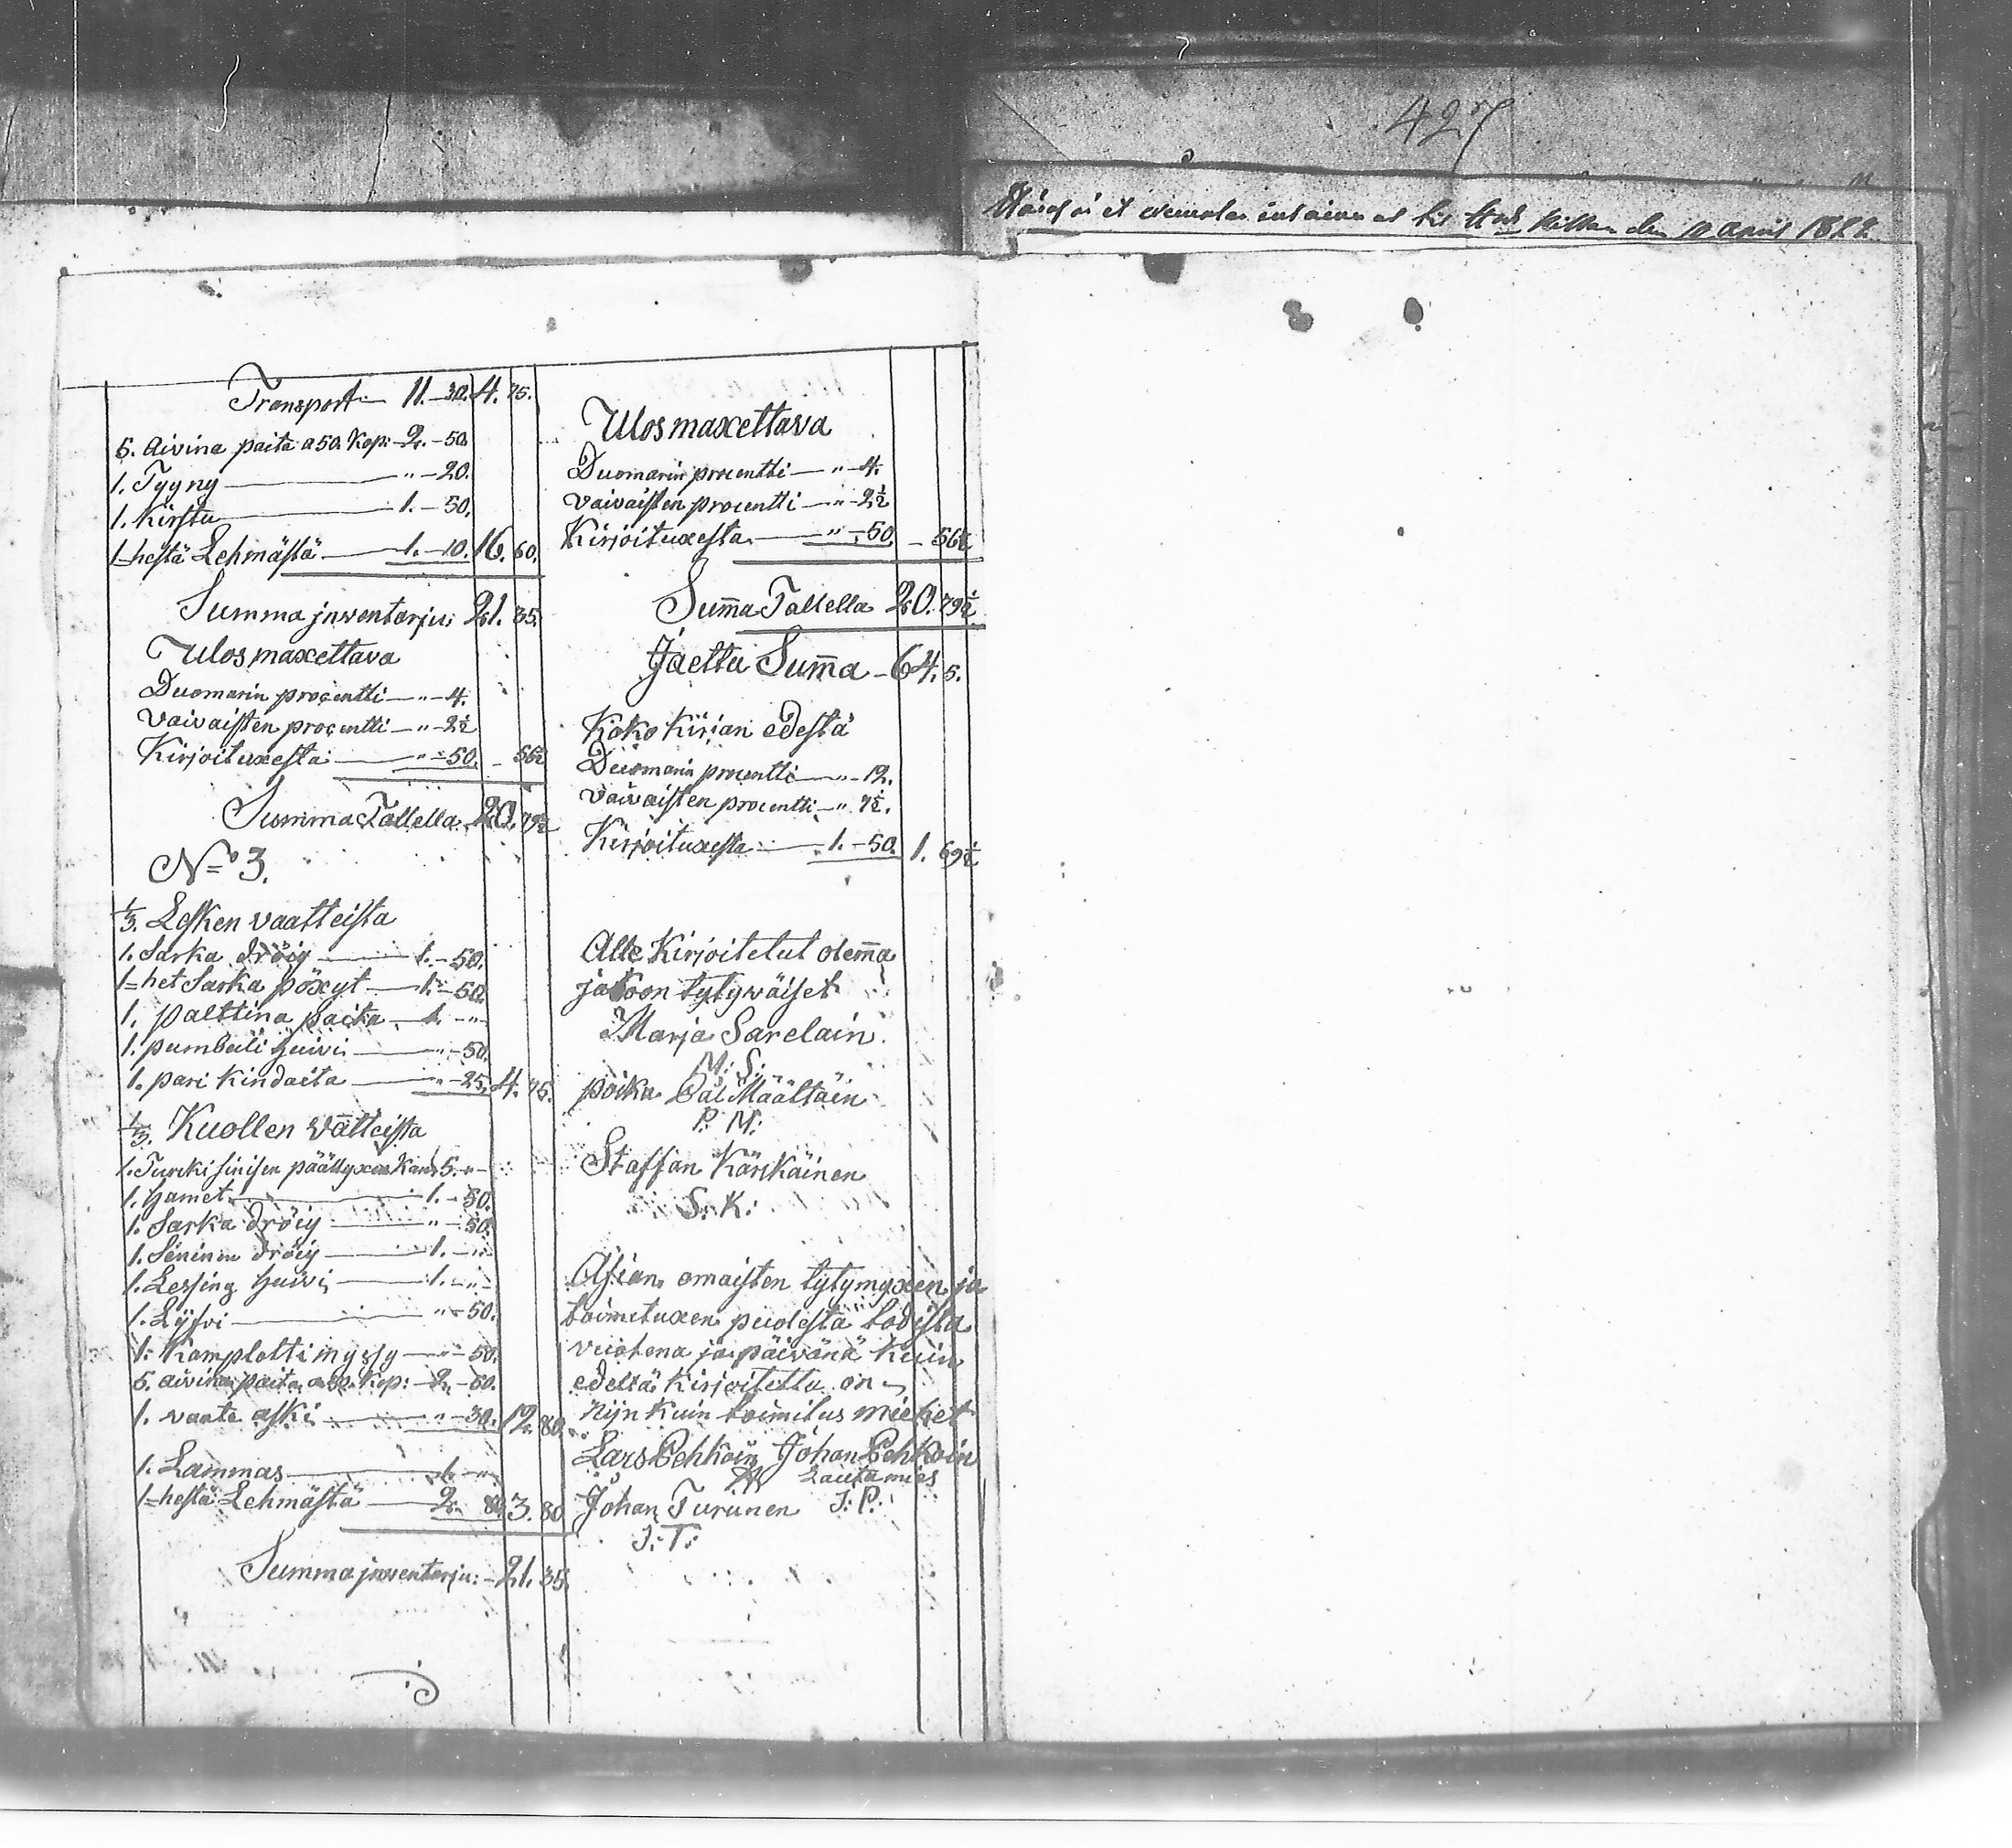 Transport — 11.—30. 4. 75.
5. Aivina paita a 50. Kop: — 2. — 50.
1. Tyyny — " — 20.
1. Kirstu — 1. — 50.
1=hestä Lehmästä — 1. — 10. 16. 60.
Summa jnwentarju: 21. 35.
Ulos maxettava
Duomarin procentti — " — 4.
Vaivaisten procentti — " — 2½
Kirjoituxesta — " — 50. — 56½
Summa Tallella 20. 79½
N=o 3.
⅓. Lesken vaatteista
1. Sarka dröiy — 1. — 50.
1=het Sarka pöxyt — 1. — 50.
1. palttina paita — 1. — "
1. pumbuli huivi — " — 50.
1. pari Kindaita — " — 25. 4. 75.
⅓. Kuollen vatteista
1. Turcki sinisen päällyxen Kans 5. " —
1. hamet — 1. — 50.
1. Sarka dröiy — " — 50.
1. Sininen dröiy — 1. — "
1. Lessing huivi — 1. — "
1. — " — 50.
1. Kamplotti myssy — " — 50.
5. aivina paita a 50. Kop: — 2. — 50.
1. vaate aski — " — 30. 12. 80.
1. Lammas — 1. — "
1=hestä Lehmästä — 2. 80. 3. 80.
Summa jnwentarju: — 21. 35.
Ulos maxettava
Duomarin procentti — " — 4.
Vaivaisten procentti — " — 2½
Kirjoituxesta — " — 50. — 56½
Sum̄a Tallella 20. 79½
Jaettu Sum̄a — 64. 5.
Koko Kirjan edestä
Duomarin procentti — " — 12.
Vaivaisten procentti — " 7½.
Kirjoituxesta — 1. — 50. 1. 69½
Alle Kirjoitetut olem̄a
jakoon tytyväiset
Marja Sarelain.
M: S:
poika Pål Määttäin
P: M:
Staffan Kärkäinen
S: K:
Asian omaisten tytymyxen ja
toimetuxen puolesta todista
vuotena ja päivänä kuin
edellä Kirjoitettu on
Nijn Kuin toimitus miehet
Lars Pehkoin Johan Pehkoin
Lautamies
Johan Turunen J: P:
J: T:
427
den 10 April 1822